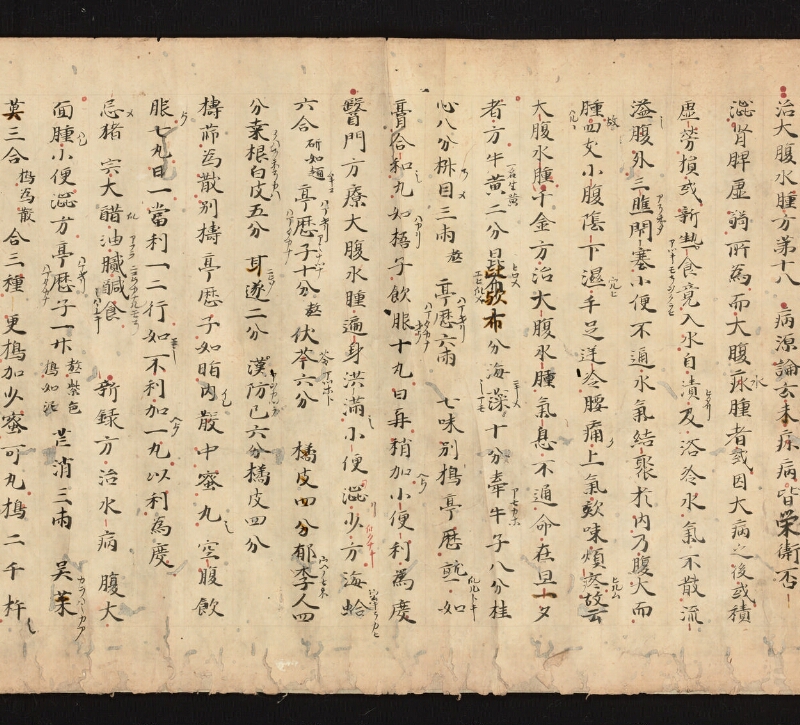 治大腹水腫方第十八 病源論云水病皆榮衛否
澁腎脾虚弱所為而大腹水腫者或因大病之後或積
虚勞損或新熱食竟入水自漬及浴冷水氣不散流
溢腹外三膲閇塞小便不通水氣結聚於内乃腹大而
腫四支小腹陰下濕手足逆冷腰痛上氣欬嗽煩疼故云
大腹水腫千金方治大腹水腫氣息不通命在旦夕
者方牛黄二分昆布 分海藻十分牽牛子八分桂
心八分椒目三兩 葶歴六兩 七味別搗葶歴 如
膏合和丸如梧子飲服十丸日再稍加小便利為度
醫門方療大腹水腫遍身洪滿小便澁少方海蛤
六合研如麺 葶歴子十分熬 伏苓六分 橘皮四分郁李人四
分桒根白皮五分 甘遂二分 漢防已六分橘皮四分
擣篩為散別擣葶歴子如脂内散中蜜丸空腹飲
服七丸日一當利一二行如不利加一丸以利為度
忌猪宍大醋油膩鹹食 新録方治水病腹大
面腫小便澁方葶歴子一升熬紫色搗如泥 芒消三兩 吴茱
萸三合搗為散 合三種更搗加少蜜可丸搗二千杵